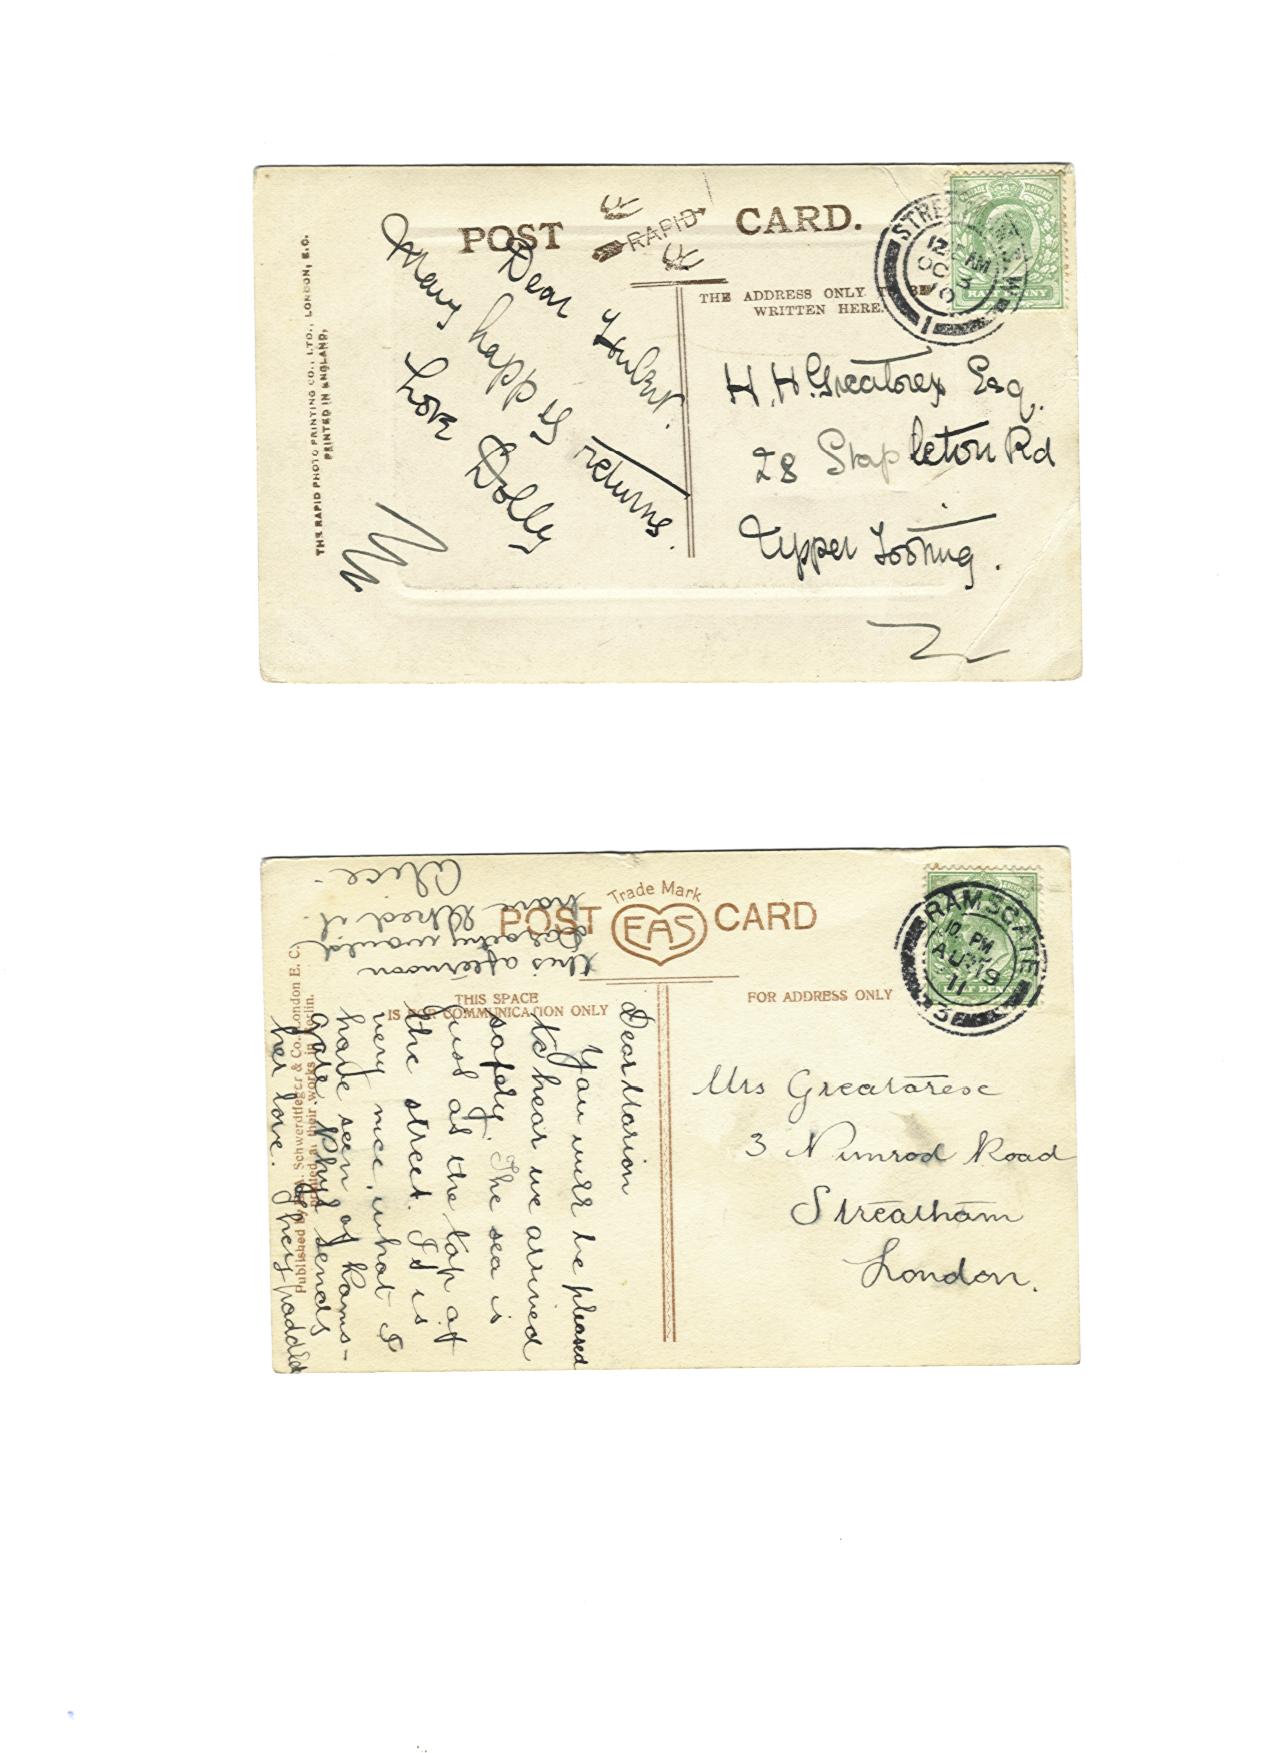 POST CARD.
RAPID
THE ADDRESS ONLY TO BE
WRITTEN HERE.
THE RAPID PHOTO PRINTING CO., LTD., LONDON, E.C.
PRINTED IN ENGLAND.
12 AM
OC 3
10
1
HALF PENNY
Dear
Many happy returns.
Love Dolly
H. H. Greatorex Esq.
28 Stapleton Rd
Upper Tooting.
POST CARD
Trade Mark
EAS
THIS SPACE
IS FOR COMMUNICATION ONLY
FOR ADDRESS ONLY
Schwerdtfeger & Co., London E. C.
Printed at their works in Berlin.
RAMSGATE
10. PM
AU 19
11
HALF PENNY
Dear Marion
You will be pleased
to hear we arrived
safely. The sea is
just at the top of
the street. It is
very nice, what I
have seen of Rams-
gate. Phyl sends
her love. They paddled
this afternoon
Dorothy would
have liked it.
Alice.
Mrs Greatorex
3 Nimrod Road
Streatham
London.